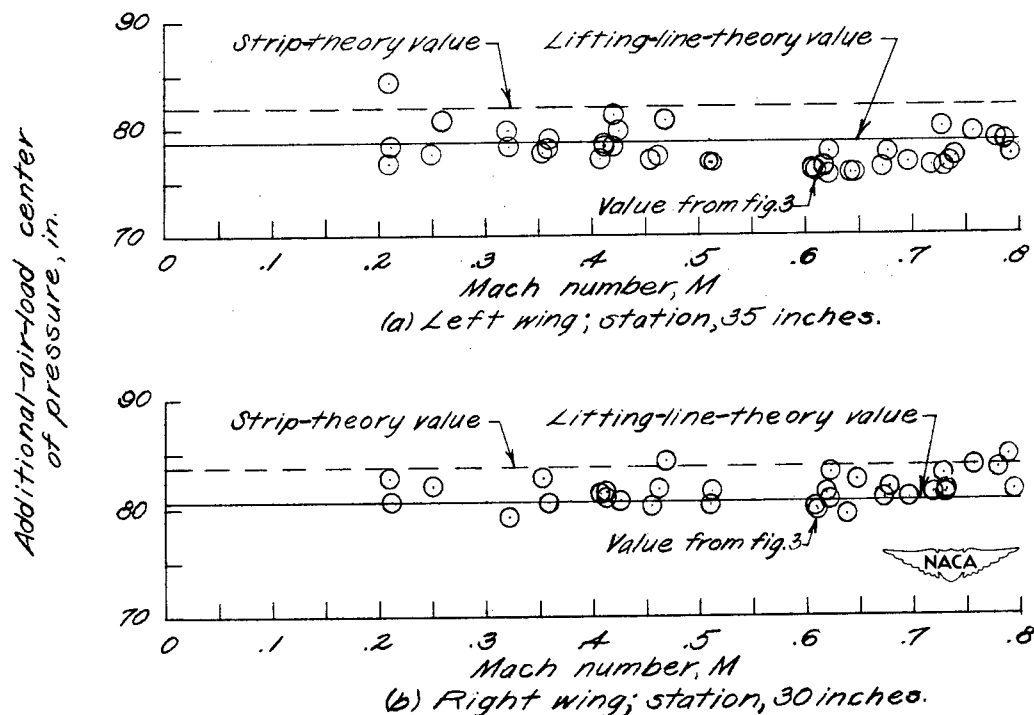 Additional-air-load center
of pressure, in.
90
80
70
Strip-theory value
Lifting-line-theory value
Value from fig.3
0 .1 .2 .3 .4 .5 .6 .7 .8
Mach number, M
(a) Left wing; station, 35 inches.
90
80
70
Strip-theory value
Lifting-line-theory value
Value from fig.3
NACA
0 .1 .2 .3 .4 .5 .6 .7 .8
Mach number, M
(b) Right wing; station, 30 inches.